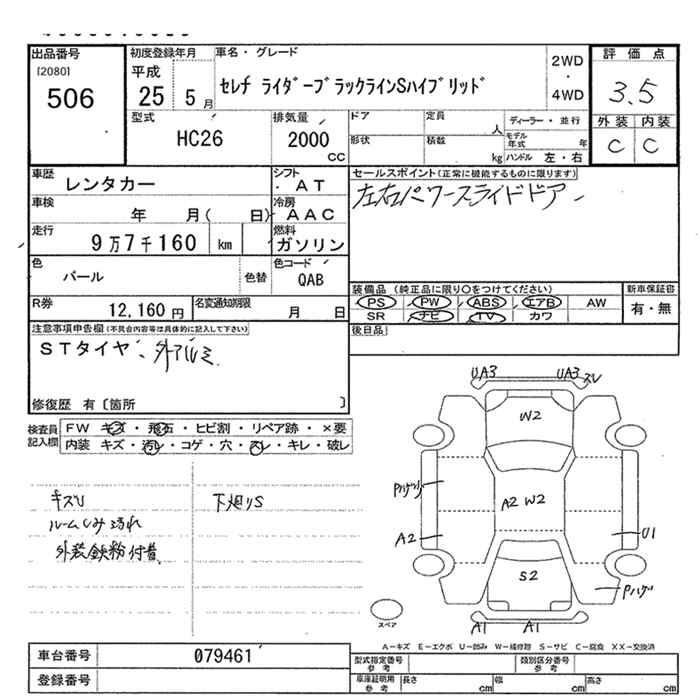 出品番号
[2080]
506
初度登録年月
平成
25 5月
車名・グレード
セレナ ライダーブラックラインSハイブリッド
2WD
・
4WD
評価点
3.5
外装 内装
C C
型式
HC26
排気量
2000
CC
ドア
定員
人
形状
積数
kg
ディーラー・並行
モデル年式 年
ハンドル 左・右
車歴
レンタカー
シフト
AT
車検
年 月( 日)
冷房
AAC
走行
9万7千160 km
燃料
ガソリン
色
パール
色替
色コード
QAB
R券
12,160円
名変通知期限
月 日
セールスポイント(正常に機能するものに限ります)
左右パワースライドドアー
装備品(純正品に限り○をつけてください)
PS PW ABS エアB AW
SR ナビ TV カワ
新車保証書
有・無
後日品
注意事項申告欄(不具合内容等は具体的に記入して下さい)
STタイヤ、外アルミ
修復歴 有〔箇所 〕
検査員記入欄
FW キズ・飛石・ヒビ割・リペア跡・×要
内装 キズ・汚レ・コゲ・穴・スレ・キレ・破レ
キズU
ルームしみ汚れ
外装鉄粉付着
下廻りS
UA3 UA3 スレ
W2
Pハゲ
A2 W2
A2
U1
S2
Pハゲ
A1 A1
スペア
A-キズ E-エクボ U-凹み W-補修跡 S-サビ C-腐食 XX-交換済
車台番号
079461
登録番号
型式指定番号
参考
類別区分番号
参考
車庫証明用
参考
長さ cm 幅 cm 高さ cm